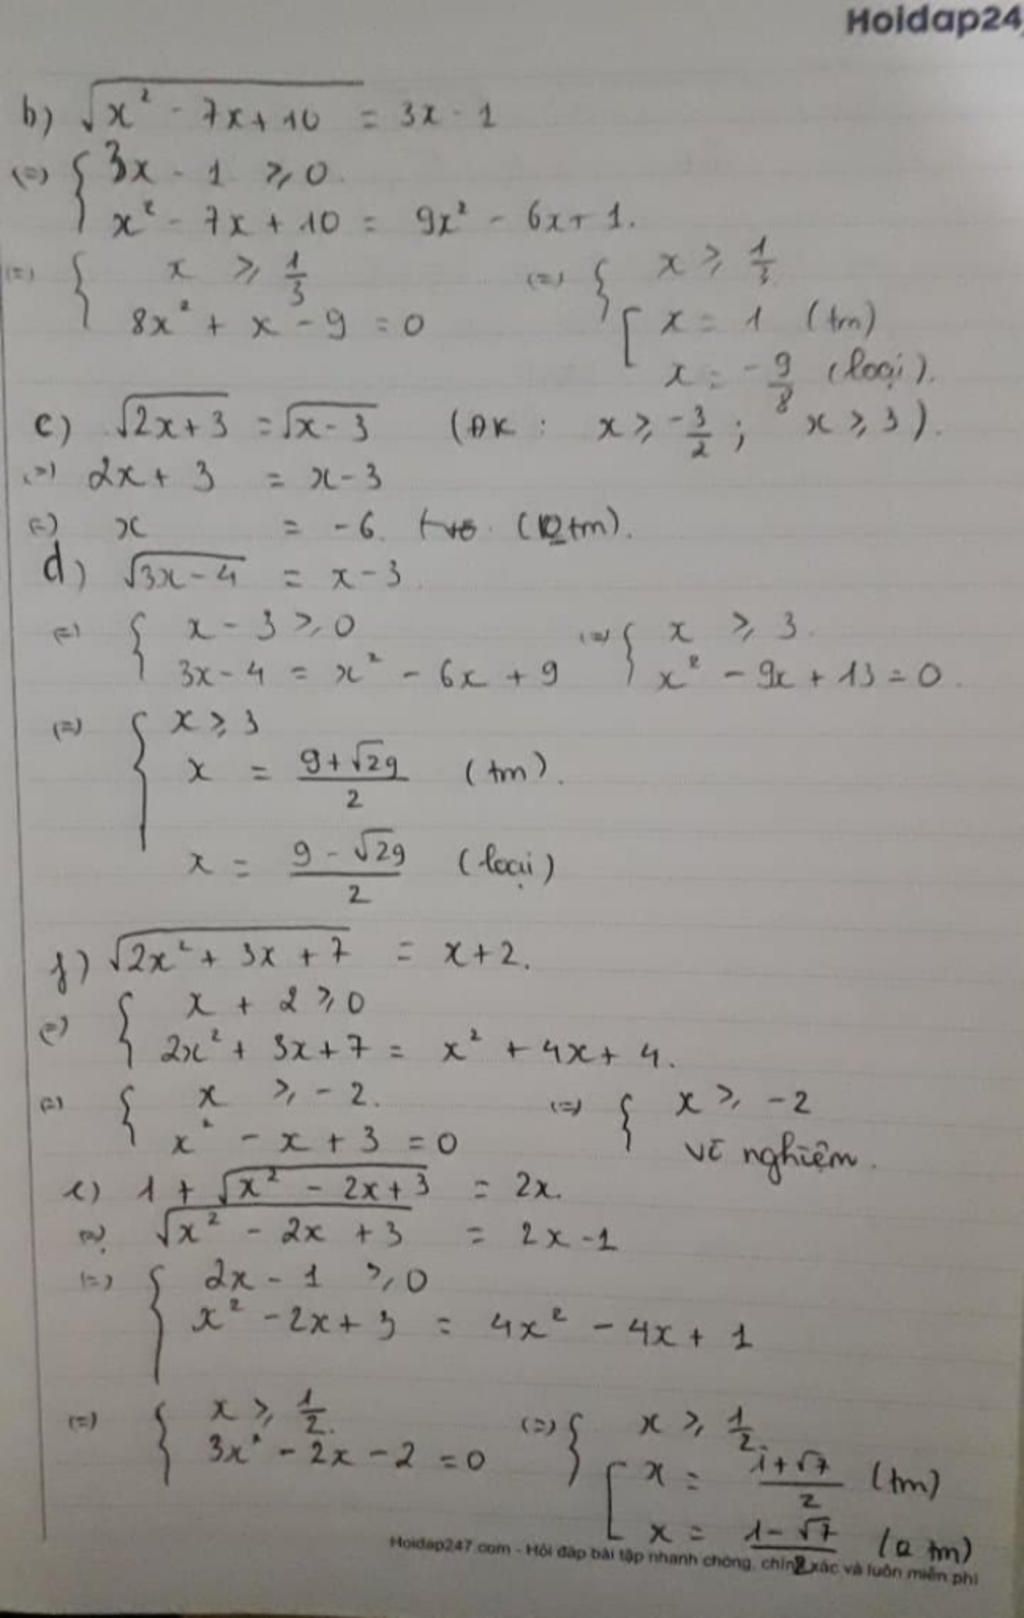 Hoidap24
b) √(x² - 7x + 10) = 3x - 1
(=) { 3x - 1 ⩾ 0.
x² - 7x + 10 = 9x² - 6x + 1.
(=) { x ⩾ 1/3 (=) { x ⩾ 1/3
8x² + x - 9 = 0 [ x = 1 (tm)
x = -9/8 (loại).
c) √(2x+3) = √(x-3) (ĐK : x ⩾ -3/2 ; x ⩾ 3).
(=) 2x + 3 = x - 3
(=) x = -6. (tm).
d) √(3x-4) = x - 3.
(=) { x - 3 ⩾ 0 (=) { x ⩾ 3.
3x - 4 = x² - 6x + 9 x² - 9x + 13 = 0.
(=) { x ⩾ 3
x = (9+√29)/2 (tm).
x = (9-√29)/2 (loại)
f) √(2x² + 3x + 7) = x + 2.
(=) { x + 2 ⩾ 0
2x² + 3x + 7 = x² + 4x + 4.
(=) { x ⩾ -2. (=) { x ⩾ -2
x² - x + 3 = 0 vô nghiệm.
e) 1 + √(x² - 2x + 3) = 2x.
(=) √(x² - 2x + 3) = 2x - 1
(=) { 2x - 1 ⩾ 0
x² - 2x + 3 = 4x² - 4x + 1
(=) { x ⩾ 1/2. (=) { x ⩾ 1/2.
3x² - 2x - 2 = 0 [ x = (1+√7)/2 (tm)
x = (1-√7)/2 (tm)
Hoidap247.com - Hỏi đáp bài tập nhanh chóng, chính xác và luôn miễn phí